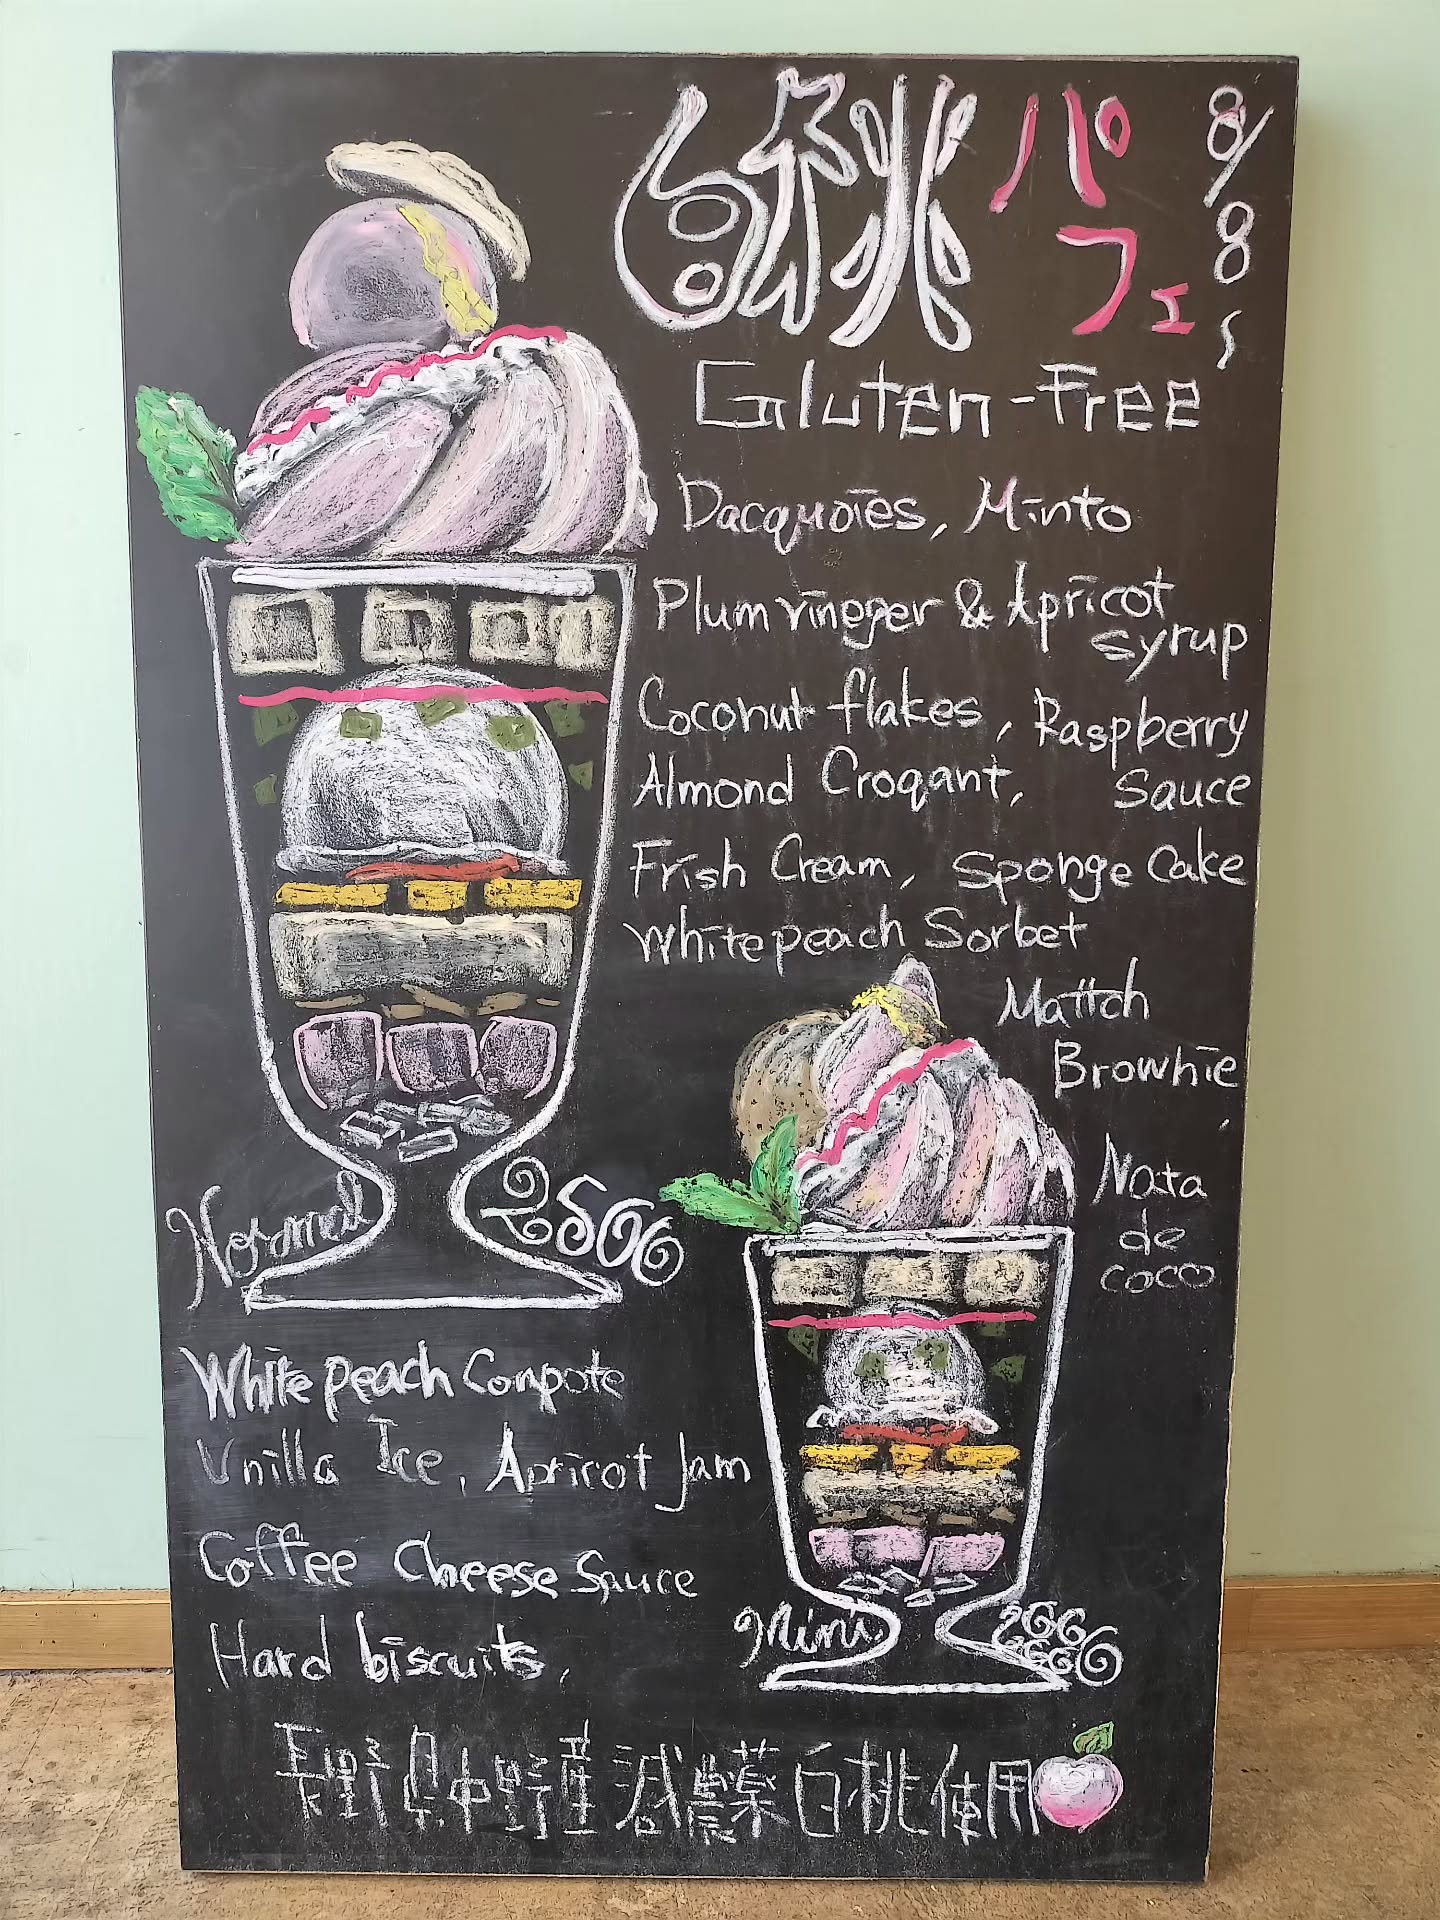 白桃パフェ
8/8〜
Gluten-Free
Dacquoies, Minto
Plum vineger & Apricot
syrup
Coconut flakes, Raspberry
Almond Croqant, Sauce
Frish Cream, Sponge Cake
White peach Sorbet
Mattch
Brownie,
Nata
de
coco
Normal 2500
White peach Conpote
Vnilla Ice, Apricot Jam
Coffee Cheese Sauce
Hard biscuits,
Mini
長野県中野産減農薬白桃使用